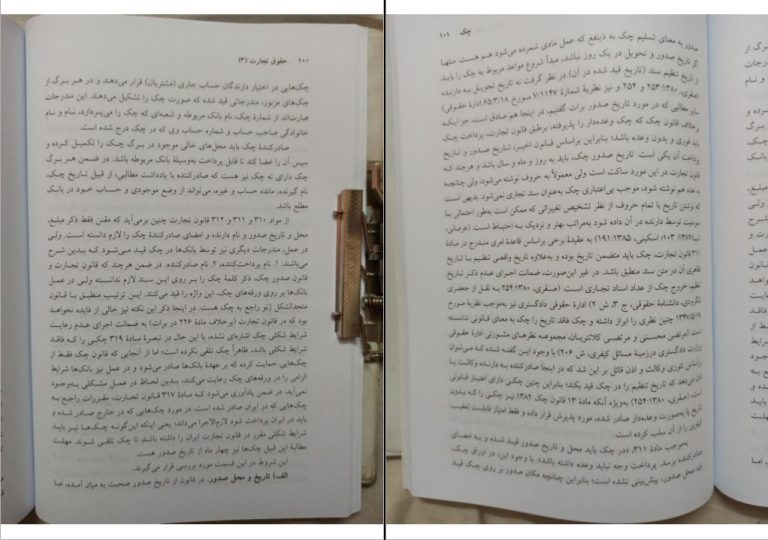 ۱۰۰ حقوق تجارت (۳)
چک‌هایی در اختیار دارندگان حساب جاری (مشتریان) قرار می‌دهند و در هر برگ از
چک‌های مزبور، مندرجاتی قید شده که صورت چک را تشکیل می‌دهند. این مندرجات
عبارت‌اند از شمارۀ چک، نام بانک مربوطه و شعبه‌ای که چک را می‌پردازد، نام و نام
خانوادگی صاحب حساب و شماره حساب وی که در چک درج شده است.
صادرکنندۀ چک باید محل‌های خالی موجود در برگ چک را تکمیل کرده و
سپس آن را امضا کند تا قابل پرداخت به‌وسیلۀ بانک مربوطه باشد. در ضمن هر برگ
چک دارای ته چک نیز هست که صادرکننده با یادداشت مطالبی، از قبیل تاریخ چک،
نام گیرنده، مانده حساب و غیره، می‌تواند از وضع موجودی و حساب خود در بانک
مطلع باشد.
از مواد ۳۱۰ و ۳۱۱ و ۳۱۲ قانون تجارت چنین برمی‌آید که مقنن فقط ذکر مبلغ،
محل و تاریخ صدور و نام دارنده و امضای صادرکنندۀ چک را لازم دانسته است. ولی
در عمل، مندرجات دیگری نیز توسط بانک‌ها در چک قید می‌شود که بدین شرح
می‌باشند: ۱. نام پرداخت‌کننده، ۲. نام صادرکننده. در ضمن هرچند که قانون تجارت و
قانون صدور چک، ذکر کلمۀ چک را بر روی این سند لازم ندانسته ولی در عمل
بانک‌ها بر روی ورقه‌های چک، این واژه را قید می‌کنند. این ترتیب منطبق با قانون
متحدالشکل ژنو راجع به چک است. در اینجا ذکر این نکته نیز خالی از فایده نخواهد
بود که در قانون تجارت (برخلاف مادۀ ۲۲۶ در برات) به ضمانت اجرای عدم رعایت
شرایط شکلی چک اشاره‌ای نشده، با این حال در تبصرۀ مادۀ ۳۱۹ چکی را که فاقد
شرایط شکلی باشد، ظاهراً چک تلقی نکرده است؛ اما از آنجایی که قانون چک فقط از
چک‌هایی حمایت کرده که بر عهدۀ بانک‌ها صادر می‌شود و در عمل نیز بانک‌ها شرایط
الزامی را در ورقه‌های چک رعایت می‌کنند، بدین لحاظ در عمل مشکلی به‌وجود
نمی‌آید. در ضمن یادآوری می‌شود که مادۀ ۳۱۷ قانون تجارت، مقررات راجع به
چک‌هایی که در ایران صادر شده است، در مورد چک‌هایی که در خارج صادر شده و
باید در ایران پرداخت شود لازم‌الاجرا می‌داند؛ یعنی اینکه این‌گونه چک‌ها نیز باید
شرایط شکلی مقرر در قانون تجارت ایران را داشته باشند تا چک تلقی شوند. مهلت
مطالبۀ این قبیل چک‌ها نیز چهار ماه از تاریخ صدور هست.
این شروط در این قسمت مورد بررسی قرار می‌گیرند.
الف) تاریخ و محل صدور. در قانون از تاریخ صدور صحبت به میان آمده، اما
چک ۱۰۱
صدور به معنای تسلیم چک به ذینفع که عمل مادی شمرده می‌شود هم هست. منتها
اگر تاریخ صدور و تحویل در یک روز نباشد، مبدأ شروع مواعد مربوط به چک را باید
از تاریخ تنظیم سند (تاریخ قید شده در آن) در نظر گرفت نه تاریخ تحویل به دارنده
(صقری، ۱۳۸۰: ۲۵۳ و ۲۵۴ و نیز نظریۀ شمارۀ ۷/۱۱۴۷ مورخ ۶۵/۳/۱۸ ادارۀ حقوقی)
سایر مطالبی که در مورد تاریخ صدور برات گفتیم، در اینجا هم صادق است، جز اینکه
برخلاف قانون چک که چک وعده‌دار را پذیرفته، برطبق قانون تجارت، پرداخت چک
باید فوری و بدون وعده باشد؛ بنابراین براساس قانون اخیر، تاریخ صدور و تاریخ
پرداخت آن یکی است. تاریخ صدور چک، باید به روز و ماه و سال باشد و هرچند که
قانون تجارت در این مورد ساکت است ولی معمولاً به حروف نوشته می‌شود، ولی چنانچه
به عدد هم نوشته شود، موجب بی‌اعتباری چک به‌عنوان سند تجاری نمی‌شود. بدیهی است
که نوشتن تاریخ با تمام حروف از نظر تشخیص تغییراتی که ممکن است به‌طور احتمالی با
سوءنیت توسط دارنده در آن داده شود به‌مراتب بهتر و نزدیک به احتیاط است. (عرفانی،
۱۳۸۲: ۱۰۳؛ اسکینی، ۱۳۸۵: ۱۹۱) به عقیدۀ برخی براساس قاعدۀ امری مندرج در مادۀ
۳۱۱ قانون تجارت، چک باید متضمن تاریخ بوده و به‌علاوه تاریخ واقعی تنظیم با تاریخ
ظاهری آن در متن سند منطبق باشد. در غیر این‌صورت، ضمانت اجرای عدم ذکر تاریخ
تنظیم، خروج چک از عداد اسناد تجاری است. (صقری، ۱۳۸۰: ۲۵۴ به نقل از جعفری
لنگرودی، دانشنامۀ حقوقی، ج ۳، ش ۲) ادارۀ حقوقی دادگستری نیز به‌موجب نظریۀ مورخ
۱۳۴۷/۵/۱۹ چنین نظری را ابراز داشته و چک فاقد تاریخ را چک به معنای قانونی ندانسته
است. (مرتضی محسنی و مرتضی کلانتریان، مجموعه نظرهای مشورتی ادارۀ حقوقی
وزارت دادگستری درزمینۀ مسائل کیفری، ش ۲۰۶) با وجود این گفته شده که می‌توان
براساس تئوری وکالت و اذن قائل بر این شد که در اینجا صادرکننده به دارنده وکالت یا
اذن می‌دهد که تاریخ تنظیم را در چک قید بکند؛ بنابراین چنین چکی دارای اعتبار قانونی
است. (صقری، ۱۳۸۰: ۲۵۴) به‌ویژه آنکه مادۀ ۱۳ قانون چک ۱۳۸۲ نیز چکی را که بدون
تاریخ یا به‌صورت وعده‌دار صادر شده، مورد پذیرش قرار داده و فقط امتیاز قابلیت تعقیب
کیفری را از آن سلب کرده است.
به‌موجب مادۀ ۳۱۱، «در چک باید محل و تاریخ صدور قید شده و به امضای
صادرکننده برسد. پرداخت وجه نباید وعده داشته باشد». با وجود این، در اوراق چک،
قید محل صدور، پیش‌بینی نشده است؛ بنابراین چنانچه مکان صدور بر روی چک قید